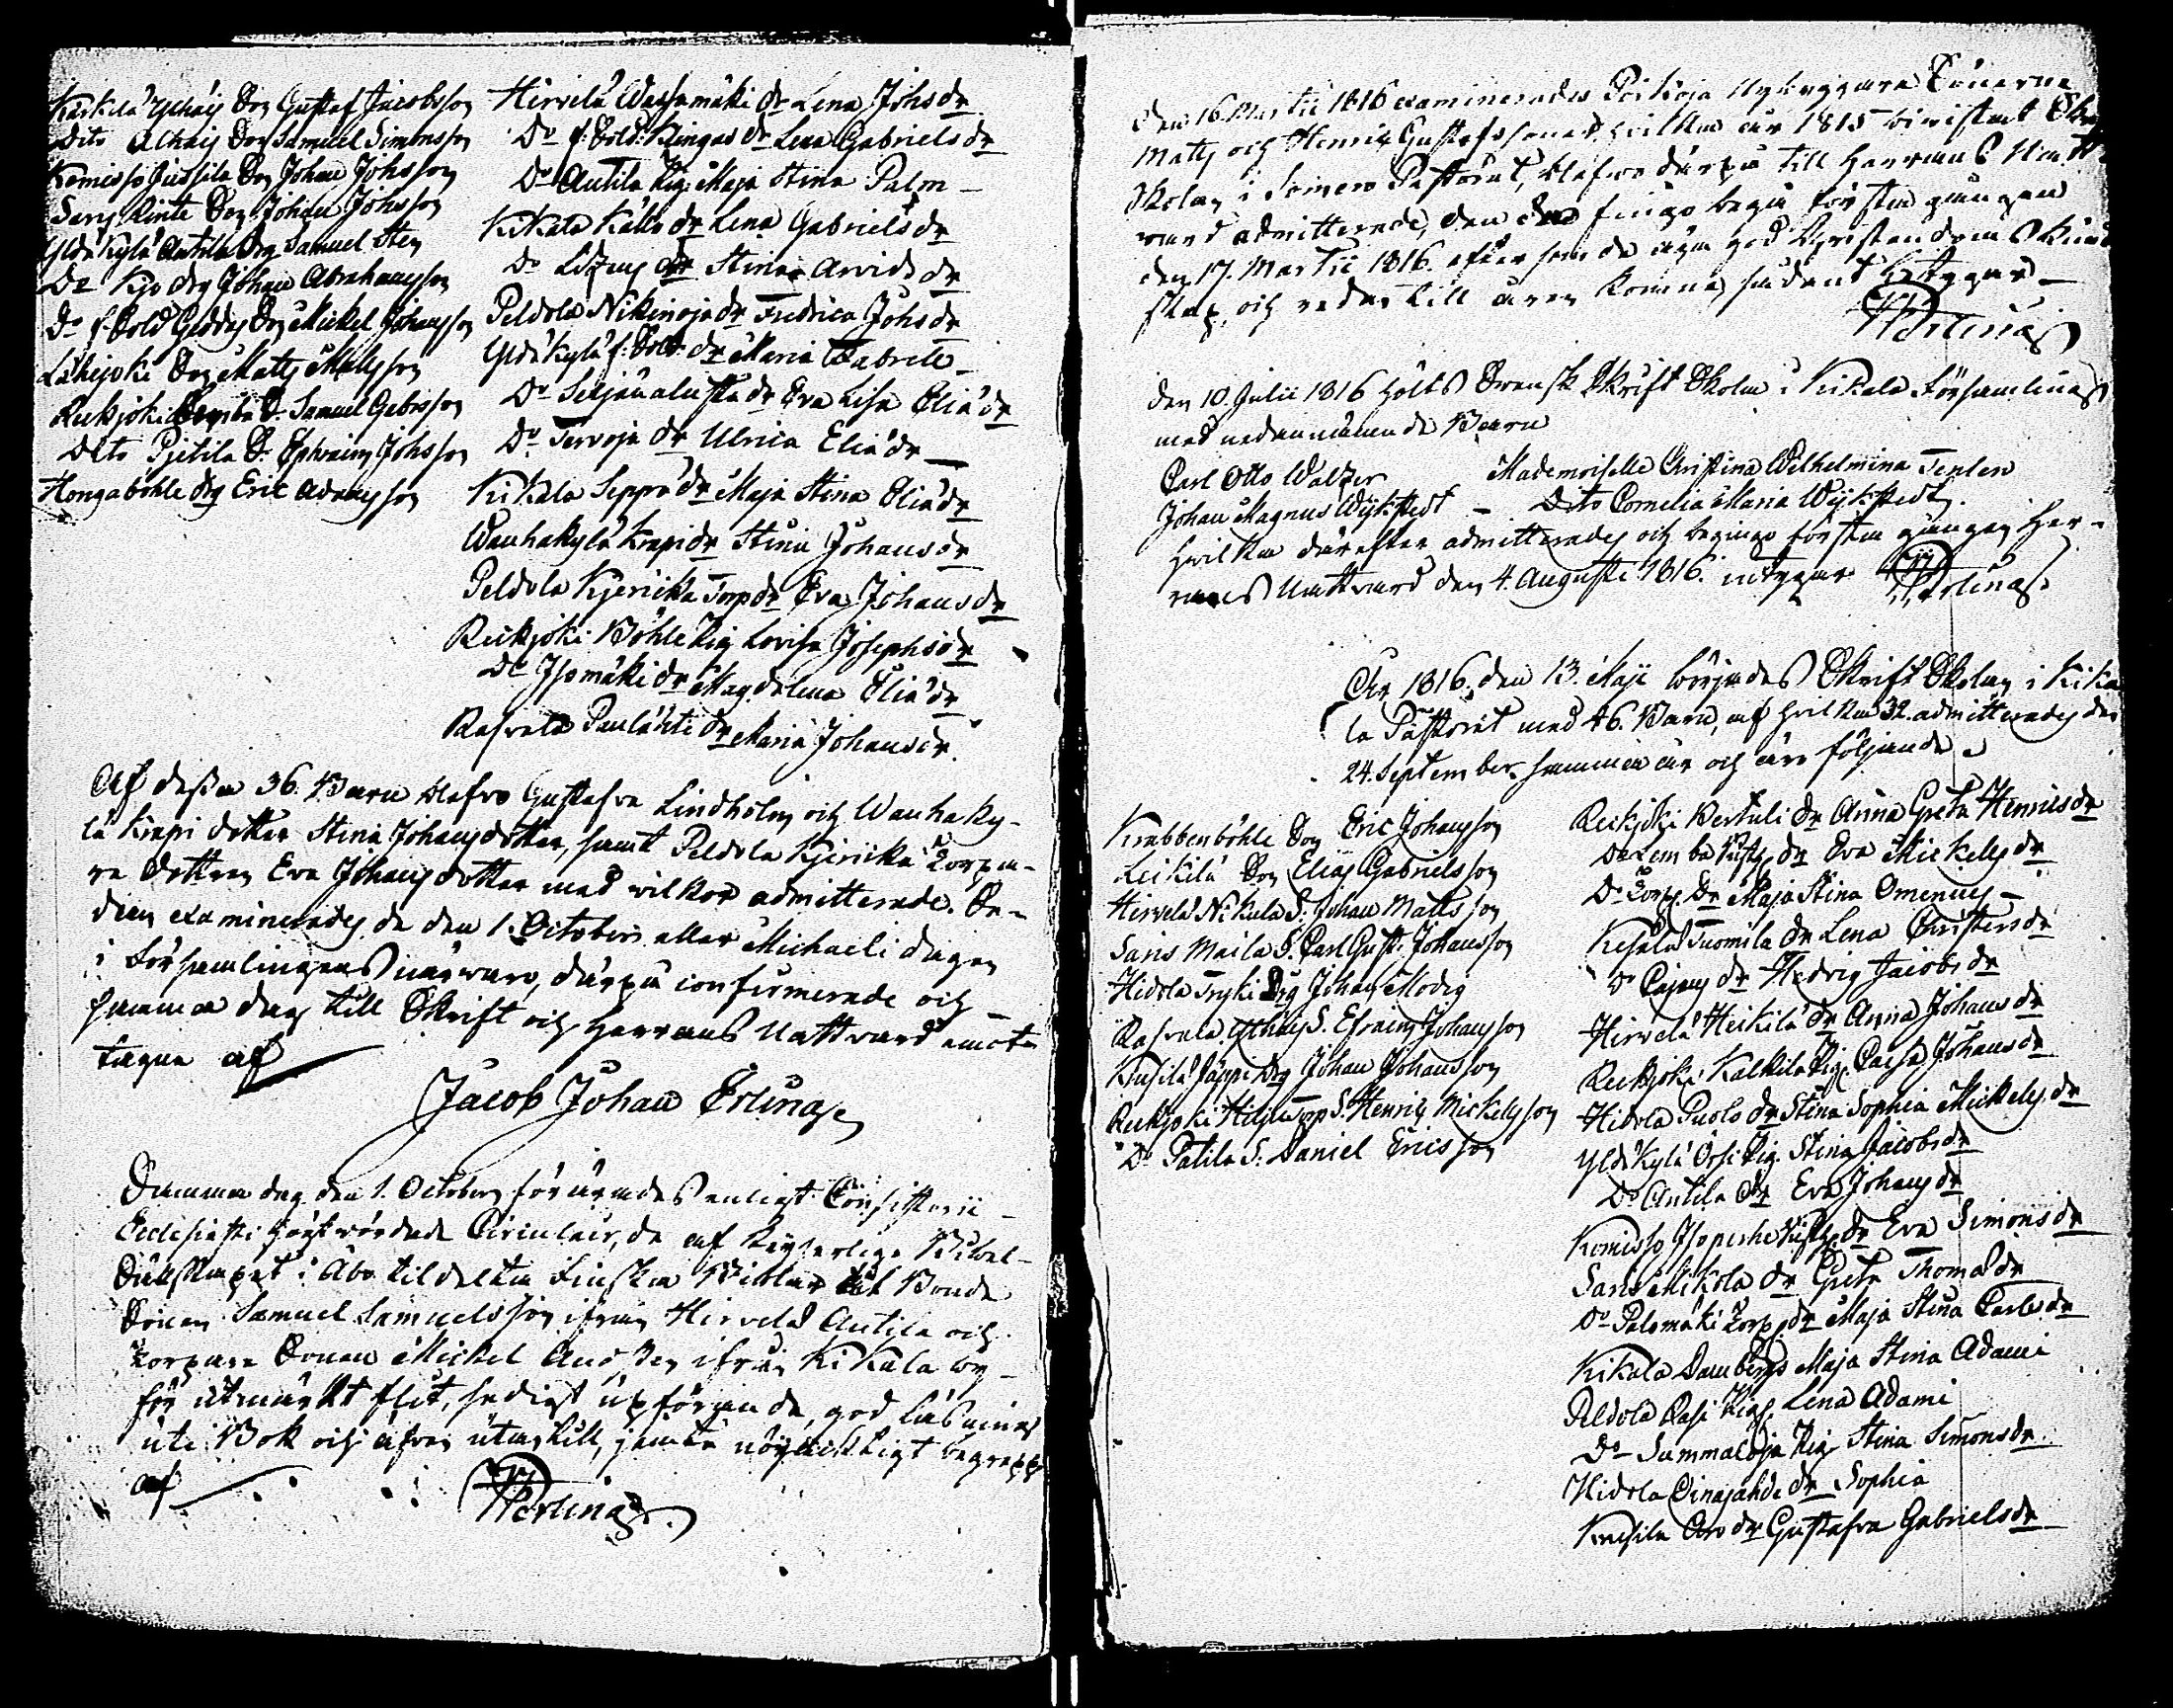 Karkela Ythäis Son Gustaf Jacobsson
Dito Althais Son Samuel Simonsson
Komisso Jussila Son Johan Johsson
Saris Rinte Son Johan Johsson
Yldäkylä Antila Drg Samuel Sten
Do Kjo drg Johan Abrahamsson
Do f. Sold Geddas Son Mickel Johansson
Lähijoki Son Matts Mattsson
Rekijoki Lemba S. Samuel Gabrsson
Dito Pietila S. Ephraim Johsson
Hongaböhle drg Eric Adamsson
Hirvelä Wassamäki dr Lena Johsdr
Do f. Sold. Klingas dr Lena Gabrielsdr
Do Antila Pig. Maja Stina Palm
Kikala Kallo dr Lena Gabrielsdr
Do dr Stina Arvidsdr
Peldola Nikinoja dr Fredrica Johsdr
Yldäkylä f. Sold. dr Maria
Do Seljänalusta dr Eva Lisa Eliædr
Do Tervoja dr Ulrica Eliædr
Kikala Seppä dr Maja Stina Eliædr
Wanhakylä Krapi dr Stina Johansdr
Peldola Kjerikka Torp dr Eva Johansdr
Reikjoki Böhle Pig Lovisa Josephsdr
Do Isomäki dr Magdalena Eliædr
Rasvala Paulahti dr Maria Johansdr.
Af dessa 36. Barn blefvo Gustafva Lindholm och Wanhaky-
lä Krapi dotter Stina Johansdotter, samt Peldola Kjerikka Torpa-
re dottren Eva Johansdotter med vilkor admitterade. Se-
dan examinerades de den 1. October eller Michaeli dagen
i Församlingens närvaro, därpå confirmerade och
samma dag till Skrift och Herrans Nattvard emot-
tagna af
Jacob Johan Erling
Samma dag den 1. October förärades enligt Consistorii
Ecclesiastici högtvördade Circulair, de af Keyserliga Bibel-
Sällskapet i Åbo tildelta Finska Biblar åt Bonde
Sonen Samuel Samuelsson ifrån Hirvelä Antila och
Torpare Sonen Mickel Andssen ifrån Kikala by
för utmärkt flit, sedigt upförande, god läsning
uti Bok och äfven utantill, jemte nöjaktigt begrepp
af JJErling
Den 16 Martii 1816 examinerades Poikoja Nybyggare Sönerne
Matts och Henric Gustafssöner, hvilka år 1815 bivistat Skrift
Skolan i Somero Pastorat, blefvo därpå till Herrans Natt-
vard admitterade, den de fingo begå första gången
den 17. Martii 1816. efter som de äga god Kristendoms Kund-
skap, och redan till åren komne, sådant betygar
JJErling
Den 10 Julii 1816 hölts Svensk Skrift Skola i Kikala Församling
med nedannämnde Barn
Carl Otto Walzer Mademoiselle Christina Wilhelmina Tenlen
Johan Magnus Wijkstedt Dito Cornelia Maria Wijkstedt.
Hvilka därefter admitterades och begingo första gången Her-
rans Nattvard den 4. Augusti 1816. intygar JJErling
År 1816. den 13. Maji börjades Skrift Skolan i Kika
la Pastorat med 46. Barn, af hvilka 32. admitterades den
24. September samma år och äro följande
Krabbenböhle Son Eric Johansson
Leikilä Son Elias Gabrielsson
Hirvelä Nikula S. Johan Mattsson
Saris Maila S. Carl Gust. Johansson
Hidola Tryki Drg Johan Modig
Rasvala Ythäis S. Efraim Johansson
Krusila Jäppi Drg Johan Johansson
Reikjoki Torp S. Henric Mickelsson
Do Patila S. Daniel Ericsson
Reikjoki Bertuli dr Anna Greta Henricsdr
Do Lemba dr Eva Mickelsdr
Do Torp. Dr Maja Stina Omenus
Kesälä Tuomila dr Lena Christersdr
Do Pajans dr Hedvig Jacobsdr
Hirvelä Heikilä dr Anna Johansdr
Reikjoki Kalkila Pig. Caisa Johansdr
Hidola Puolo dr Stina Sophia Mickelsdr
Yldäkylä Orsi Pig. Stina Jacobsdr
Do Antila dr Eva Johansdr
Komisso Isoperhe dr Eva Simonsdr
Saris Mikola dr Greta Thomædr
Do Palomäki Torp dr Maja Stina Carlsdr
Kikala Dambergs Maja Stina Adami
Peldola Pasi Pig. Lena Adami
Do Sammaloja Pig Stina Simonsdr
Hidola dr Sophia
Krusila Aro dr Gustafva Gabrielsdr